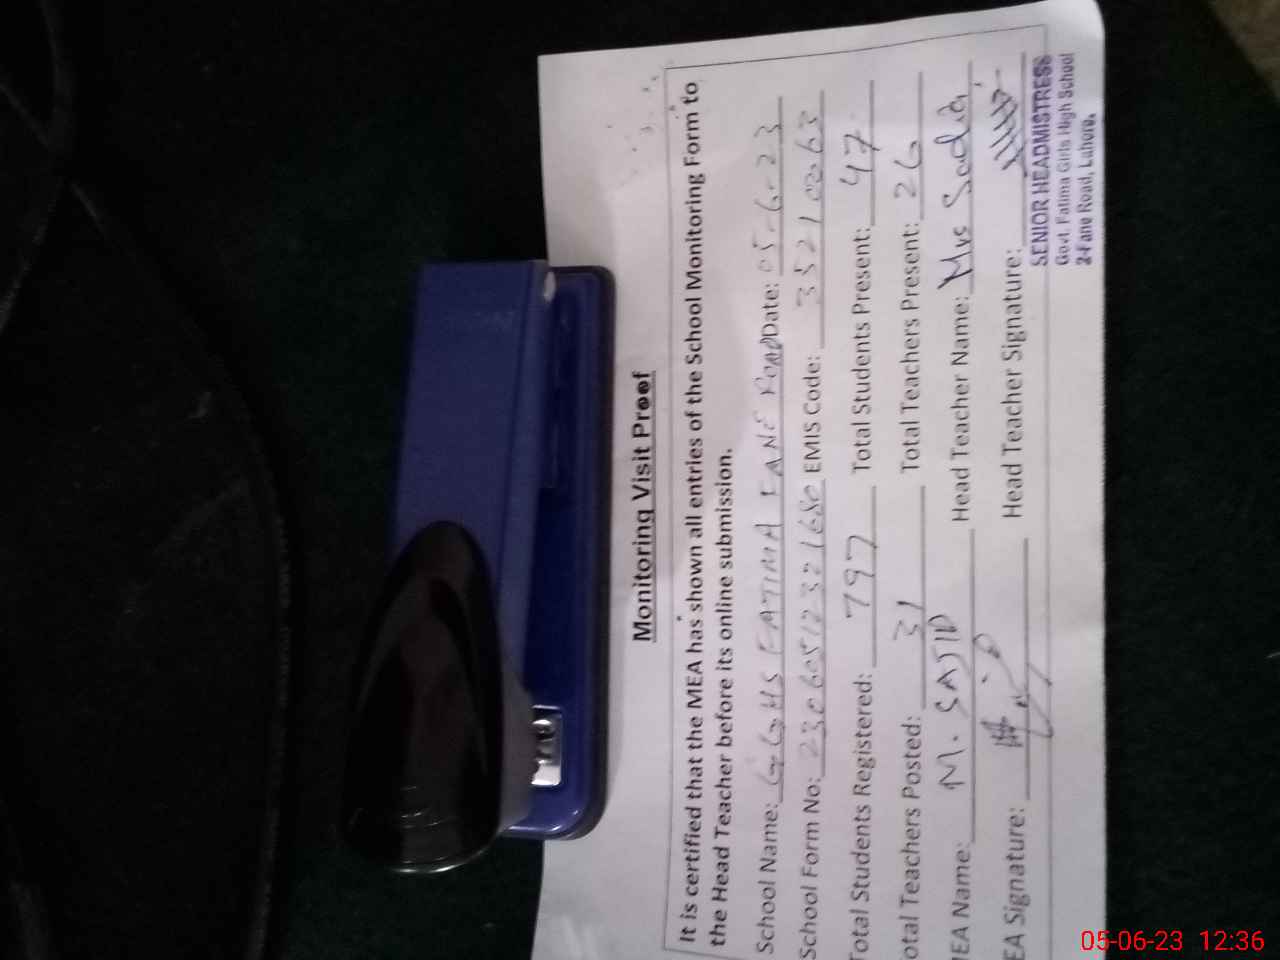 Monitoring Visit Proof
It is certified that the MEA has shown all entries of the School Monitoring Form to
the Head Teacher before its online submission.
School Name: GGHS FATIMA FANE ROAD Date: 05-6-23
School Form No: 23060512321680 EMIS Code: 35210063
Total Students Registered: 797 Total Students Present: 47
otal Teachers Posted: 31 Total Teachers Present: 26
MEA Name: M. SAJID Head Teacher Name: Mrs Sadia
EA Signature: Head Teacher Signature:
SENIOR HEADMISTRESS
Govt. Fatima Girls High School
2-Fane Road, Lahore.
05-06-23 12:36